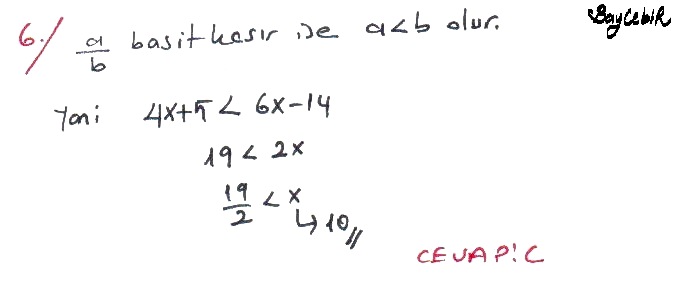 BayCebiR
6./ a/b basit kesir ise a<b olur.
Yani 4x+5 < 6x-14
19 < 2x
19/2 < x
↳ 10//
CEVAP: C